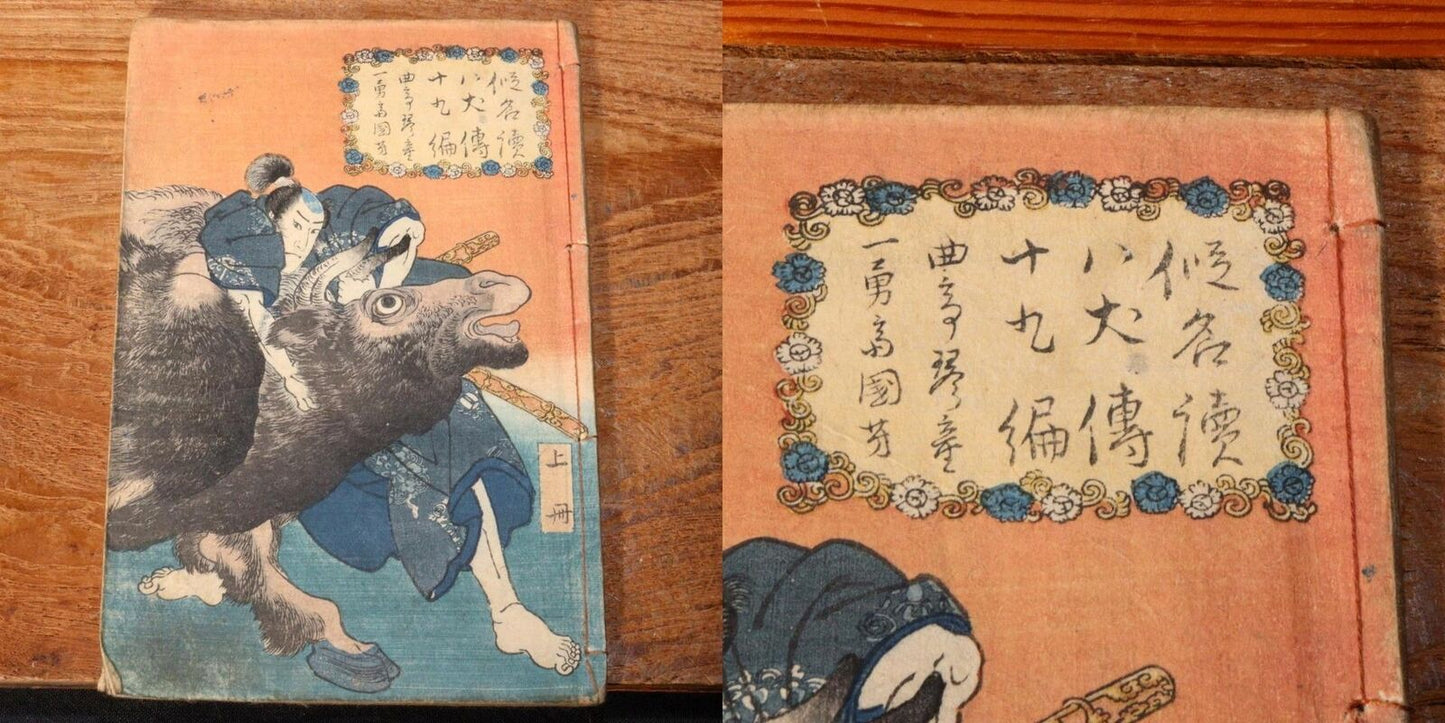 假名讀
八犬傳
十九編
曲亭琴童
一勇斎國芳
上冊
假名讀
八犬傳
十九編
曲亭琴童
一勇斎國芳